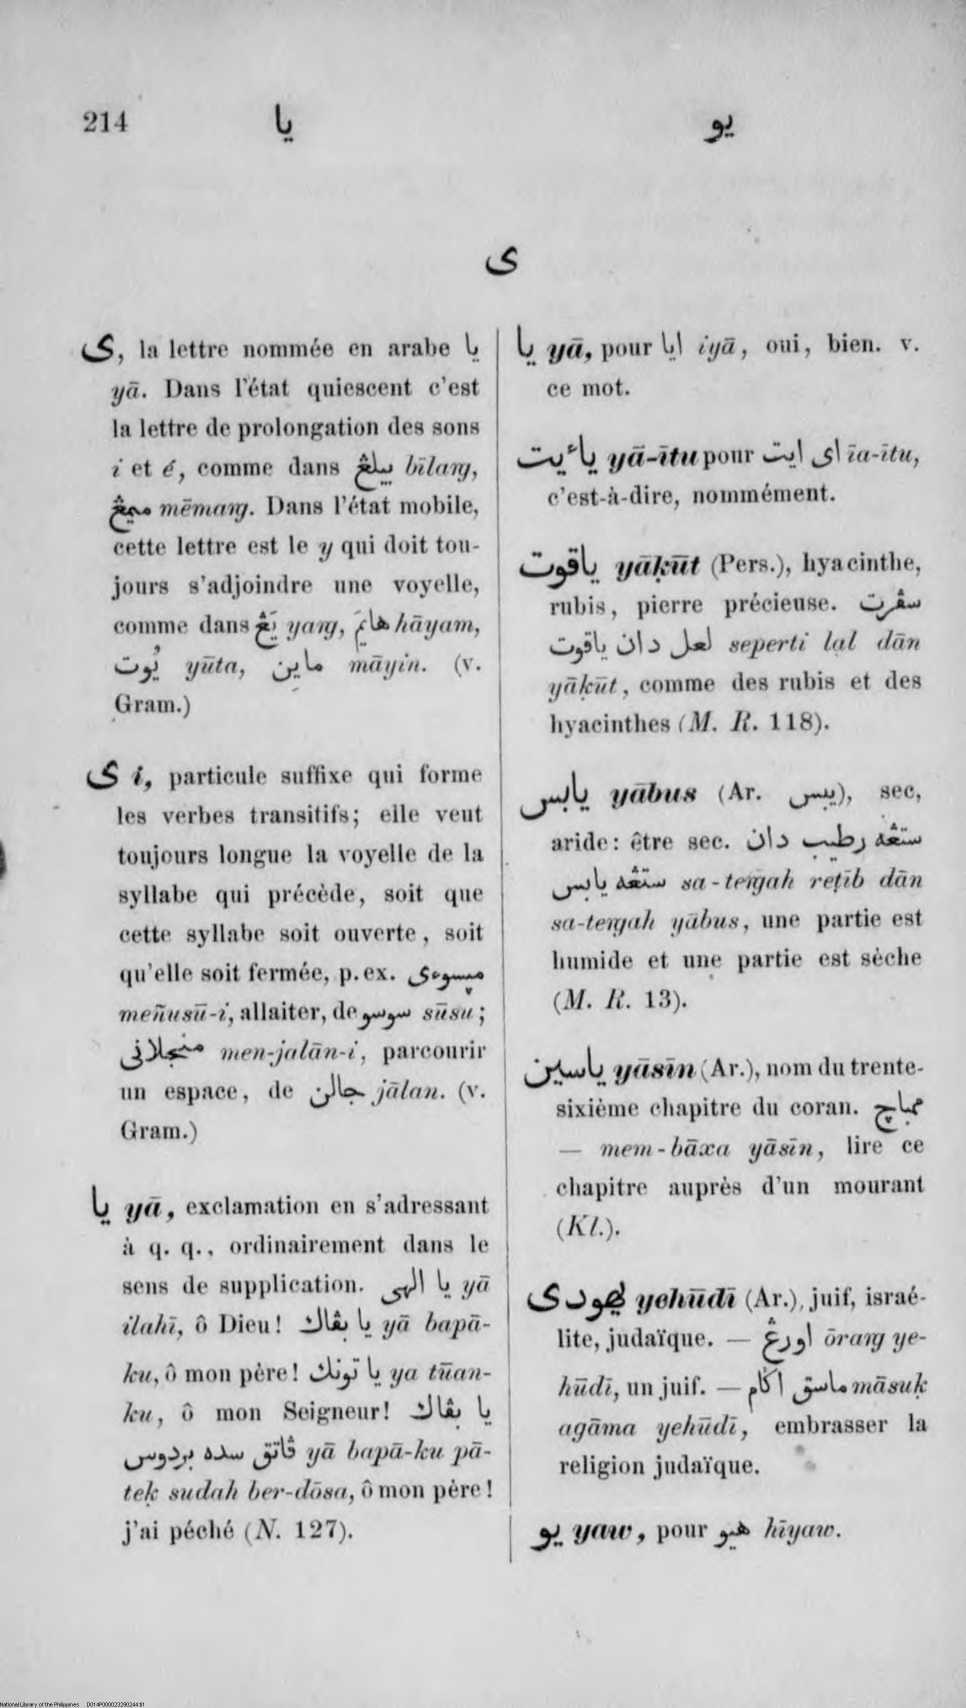 214 يا يو
ى
ى, la lettre nommée en arabe يا
yā. Dans l'état quiescent c'est
la lettre de prolongation des sons
i et é, comme dans بيلڠ bīlaṙg,
ميمڠ mēmaṙg. Dans l'état mobile,
cette lettre est le y qui doit tou-
jours s'adjoindre une voyelle,
comme dans يَڠ yaṙg, هايَم hāyam,
يُوت yūta, مايِن māyin. (v.
Gram.)
ى i, particule suffixe qui forme
les verbes transitifs; elle veut
toujours longue la voyelle de la
syllabe qui précède, soit que
cette syllabe soit ouverte, soit
qu'elle soit fermée, p. ex.
meñusū-i, allaiter, de سوسو sūsu;
منجلانى men-jalān-i, parcourir
un espace, de جالن jālan. (v.
Gram.)
يا yā, exclamation en s'adressant
à q. q., ordinairement dans le
sens de supplication. يا الهى yā
ilahī, ô Dieu! يا بڤاك yā bapā-
ku, ô mon père! يا تونك ya tūan-
ku, ô mon Seigneur! يا بڤاك
ڤاتق سده بردوس yā bapā-ku pā-
teḳ sudah ber-dōsa, ô mon père!
j'ai péché (N. 127).
يا yā, pour ايا iyā, oui, bien. v.
ce mot.
يائيت yā-ītu pour اى ايت īa-ītu,
c'est-à-dire, nommément.
ياقوت yāḳūt (Pers.), hyacinthe,
rubis, pierre précieuse. سڤرت
لعل دان ياقوت seperti lạl dān
yāḳūt, comme des rubis et des
hyacinthes (M. R. 118).
يابس yābus (Ar. يبس), sec,
aride: être sec. ستڠه رطيب دان
ستڠه يابس sa-teṙgah reṭīb dān
sa-teṙgah yābus, une partie est
humide et une partie est sèche
(M. R. 13).
ياسين yāsīn (Ar.), nom du trente-
sixième chapitre du coran. ممباچ
— mem-bāxa yāsīn, lire ce
chapitre auprès d'un mourant
(Kl.).
يهودى yehūdī (Ar.), juif, israé-
lite, judaïque. — اورڠ ōraṙg ye-
hūdī, un juif. — ماسق اڬام māsuḳ
agāma yehūdī, embrasser la
religion judaïque.
يو yaw, pour هيو hīyaw.
National Library of the Philippines